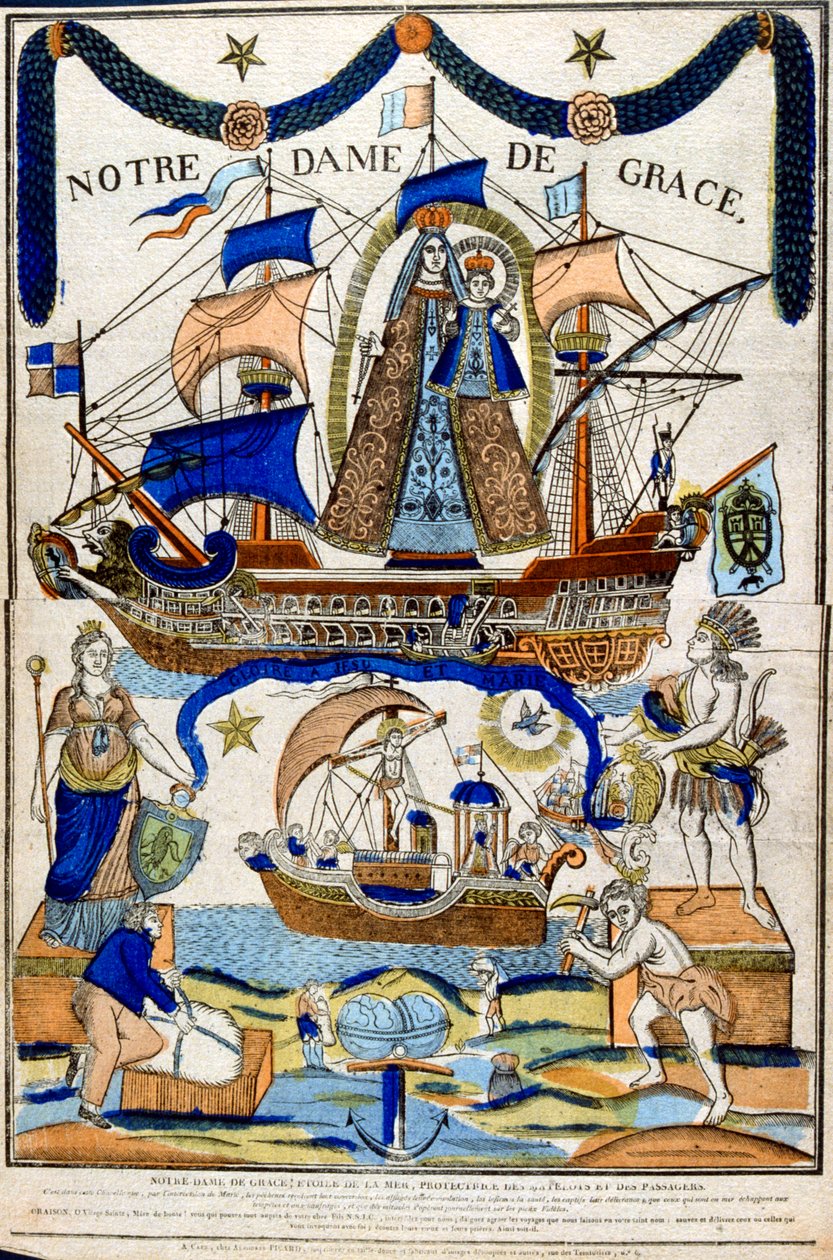 NOTRE DAME DE GRACE,
GLOIRE A JESU ET MARIE
NOTRE-DAME DE GRACE, ETOILE DE LA MER, PROTECTRICE DES MATELOTS ET DES PASSAGERS.
C'est dans cette Chapelle que, par l'intercession de Marie, les pécheurs reçoivent leur conversion, les affligés leur consolation, les infirmes la santé, les captifs leur délivrance, que ceux qui sont en mer échappent aux
tempêtes et aux naufrages, et que des miracles s'opèrent journellement sur les pieux Fidèles.
ORAISON. O Vierge Sainte, Mère de bonté! vous qui pouvez tout auprès de votre cher Fils N.S.J.C., intercédez pour nous; daignez agréer les voyages que nous faisons en votre saint nom: sauvez et délivrez ceux ou celles qui
vous invoquent avec foi; écoutez leurs vœux et leurs prières. Ainsi soit-il.
A Caen, chez PICARD, en taille-douce et fabricant d'images découpées et autres, rue des Teinturiers, n.º 6.